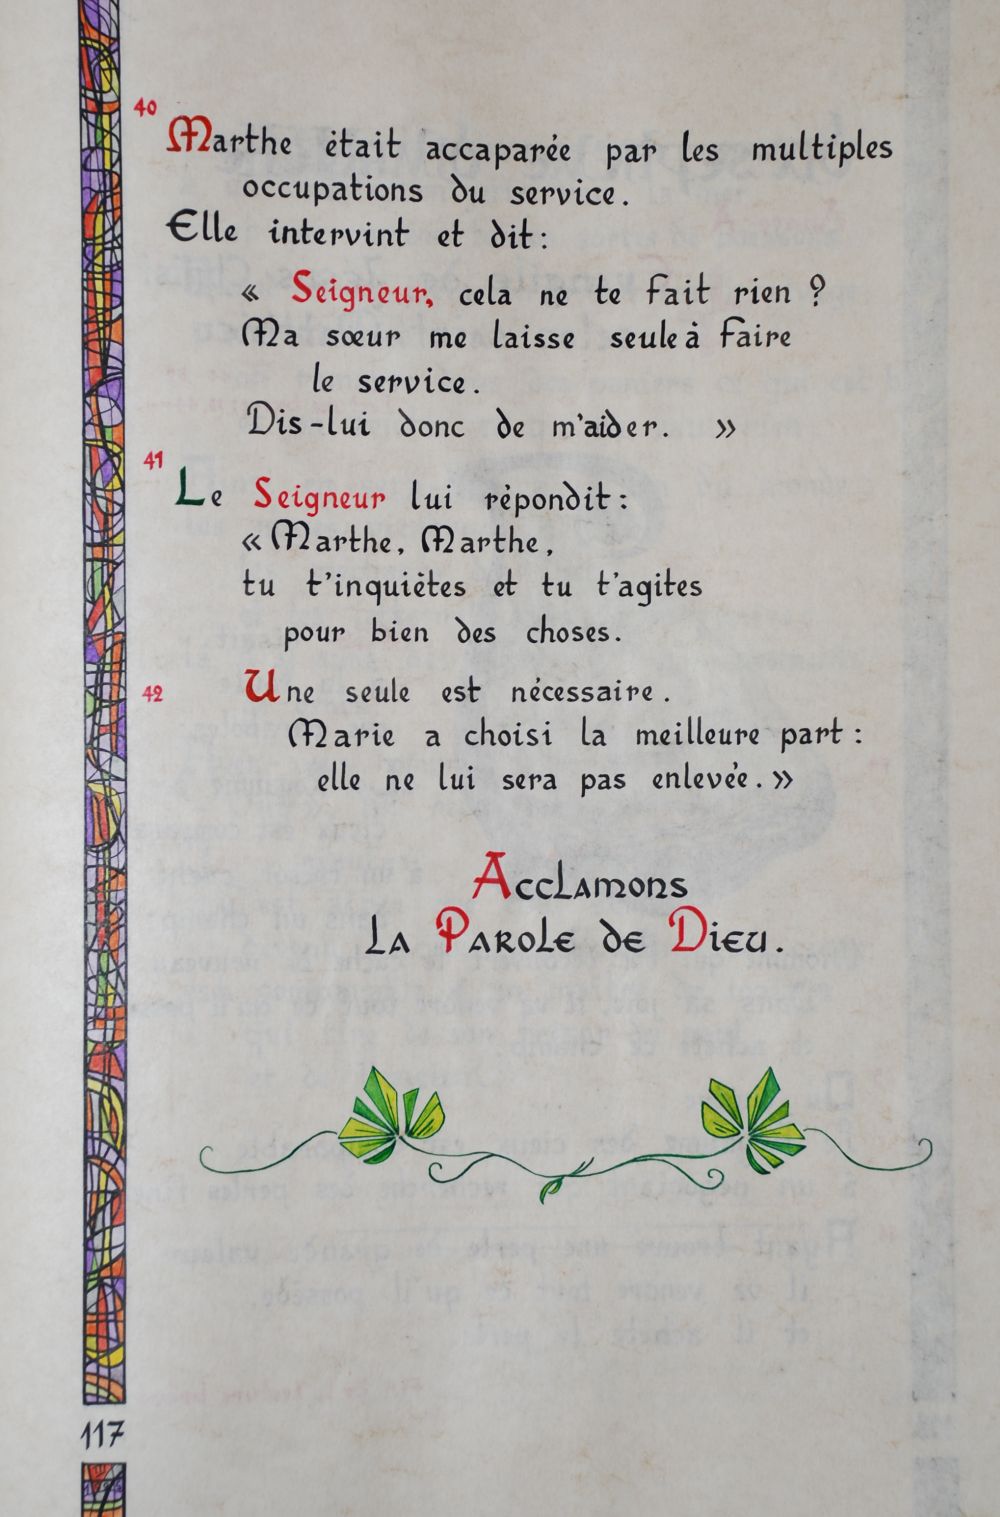 40
Marthe était accaparée par les multiples
occupations du service.
Elle intervint et dit :
« Seigneur, cela ne te fait rien ?
Ma sœur me laisse seule à faire
le service.
Dis-lui donc de m'aider. »
41
Le Seigneur lui répondit :
« Marthe, Marthe,
tu t'inquiètes et tu t'agites
pour bien des choses.
42 Une seule est nécessaire.
Marie a choisi la meilleure part :
elle ne lui sera pas enlevée. »
Acclamons
La Parole de Dieu.
117